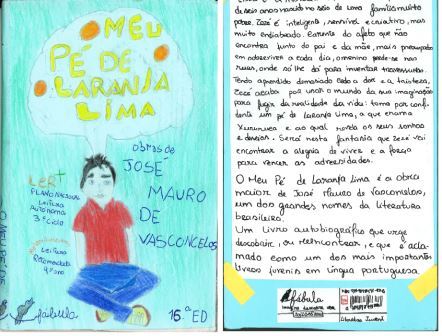 MEU
PÉ DE
LARANJA
LIMA
obras de
JOSÉ
MAURO
DE
VASCONCELOS
LER+
PLANO NACIONAL
LEITURA
AUTÓNOMA
3º Ciclo
Leitura
Recomendada
fábula
15.ª ED
de seis anos nascido no seio de uma família muito
pobre. Zezé é inteligente, sensível e criativo, mas
muito endiabrado. Carente do afeto que não
encontra junto do pai e da mãe, mais preocupados
em sobreviver a cada dia, o menino perde-se nas
ruas, onde só lhe dá para inventar travessuras.
Tendo aprendido demasiado cedo a dor e a tristeza,
Zezé acaba por usar o mundo da sua imaginação
para fugir da realidade da vida: toma por confi-
dente um pé de laranja lima, a que chama
Xururuca e ao qual revela os seus sonhos
e desejos. Será nesta fantasia que Zezé vai
encontrar a alegria de viver e a força
para vencer as adversidades.
O Meu Pé de Laranja Lima é a obra
maior de José Mauro de Vasconcelos,
um dos grandes nomes da literatura
brasileira.
Um livro autobiográfico que urge
descobrir, ou reencontrar, e que é acla-
mado como um dos mais importantes
livros juvenis em língua portuguesa.
fábula
Literatura Juvenil